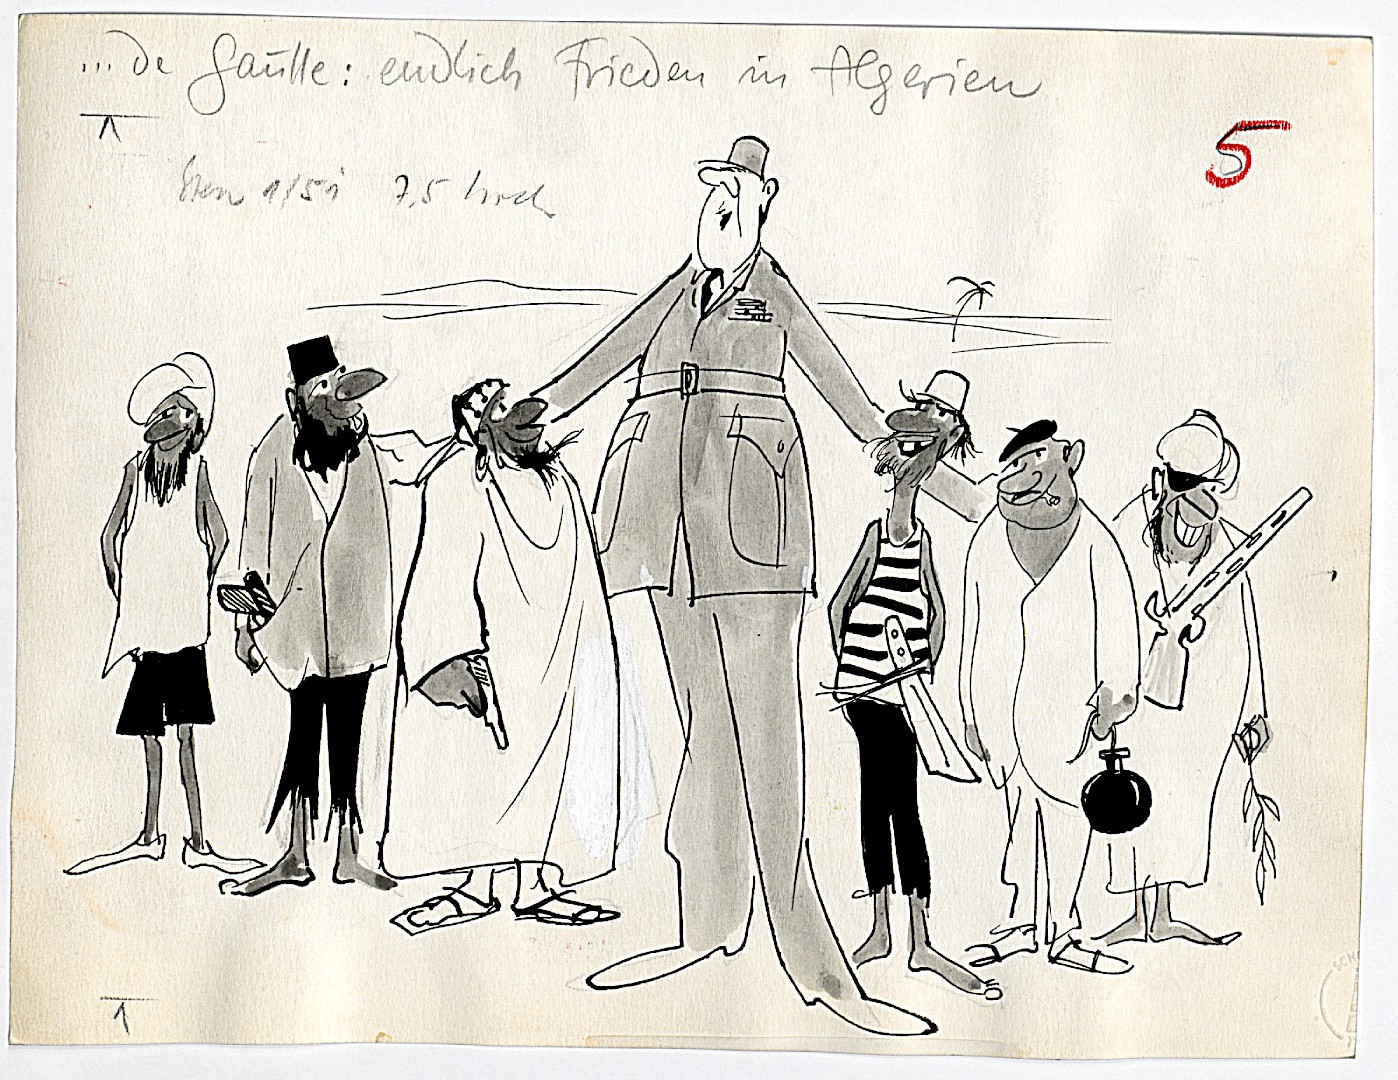 ... de Gaulle: endlich Frieden in Algerien
5
Stern 1/59 7,5 hoch